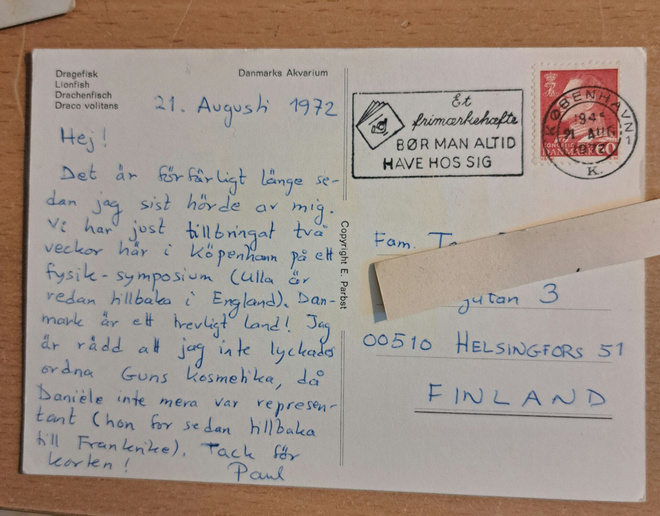 Dragefisk
Lionfish
Drachenfisch
Draco volitans
Danmarks Akvarium
21. Augusti 1972
Hej!
Det är förfärligt länge se-
dan jag sist hörde av mig.
Vi har just tillbringat två
veckor här i Köpenhamn på ett
fysik-symposium (Ulla är
redan tillbaka i England). Dan-
mark är ett trevligt land! Jag
är rädd att jag inte lyckades
ordna Guns kosmetika, då
Danièle inte mera var represen-
tant (hon for sedan tillbaka
till Frankrike). Tack för
korten!
Paul
Copyright E. Parbst
Et
frimærkehæfte
BØR MAN ALTID
HAVE HOS SIG
KØBENHAVN
1972
K.
DANMARK
Fam.
gatan 3
00510 HELSINGFORS 51
FINLAND